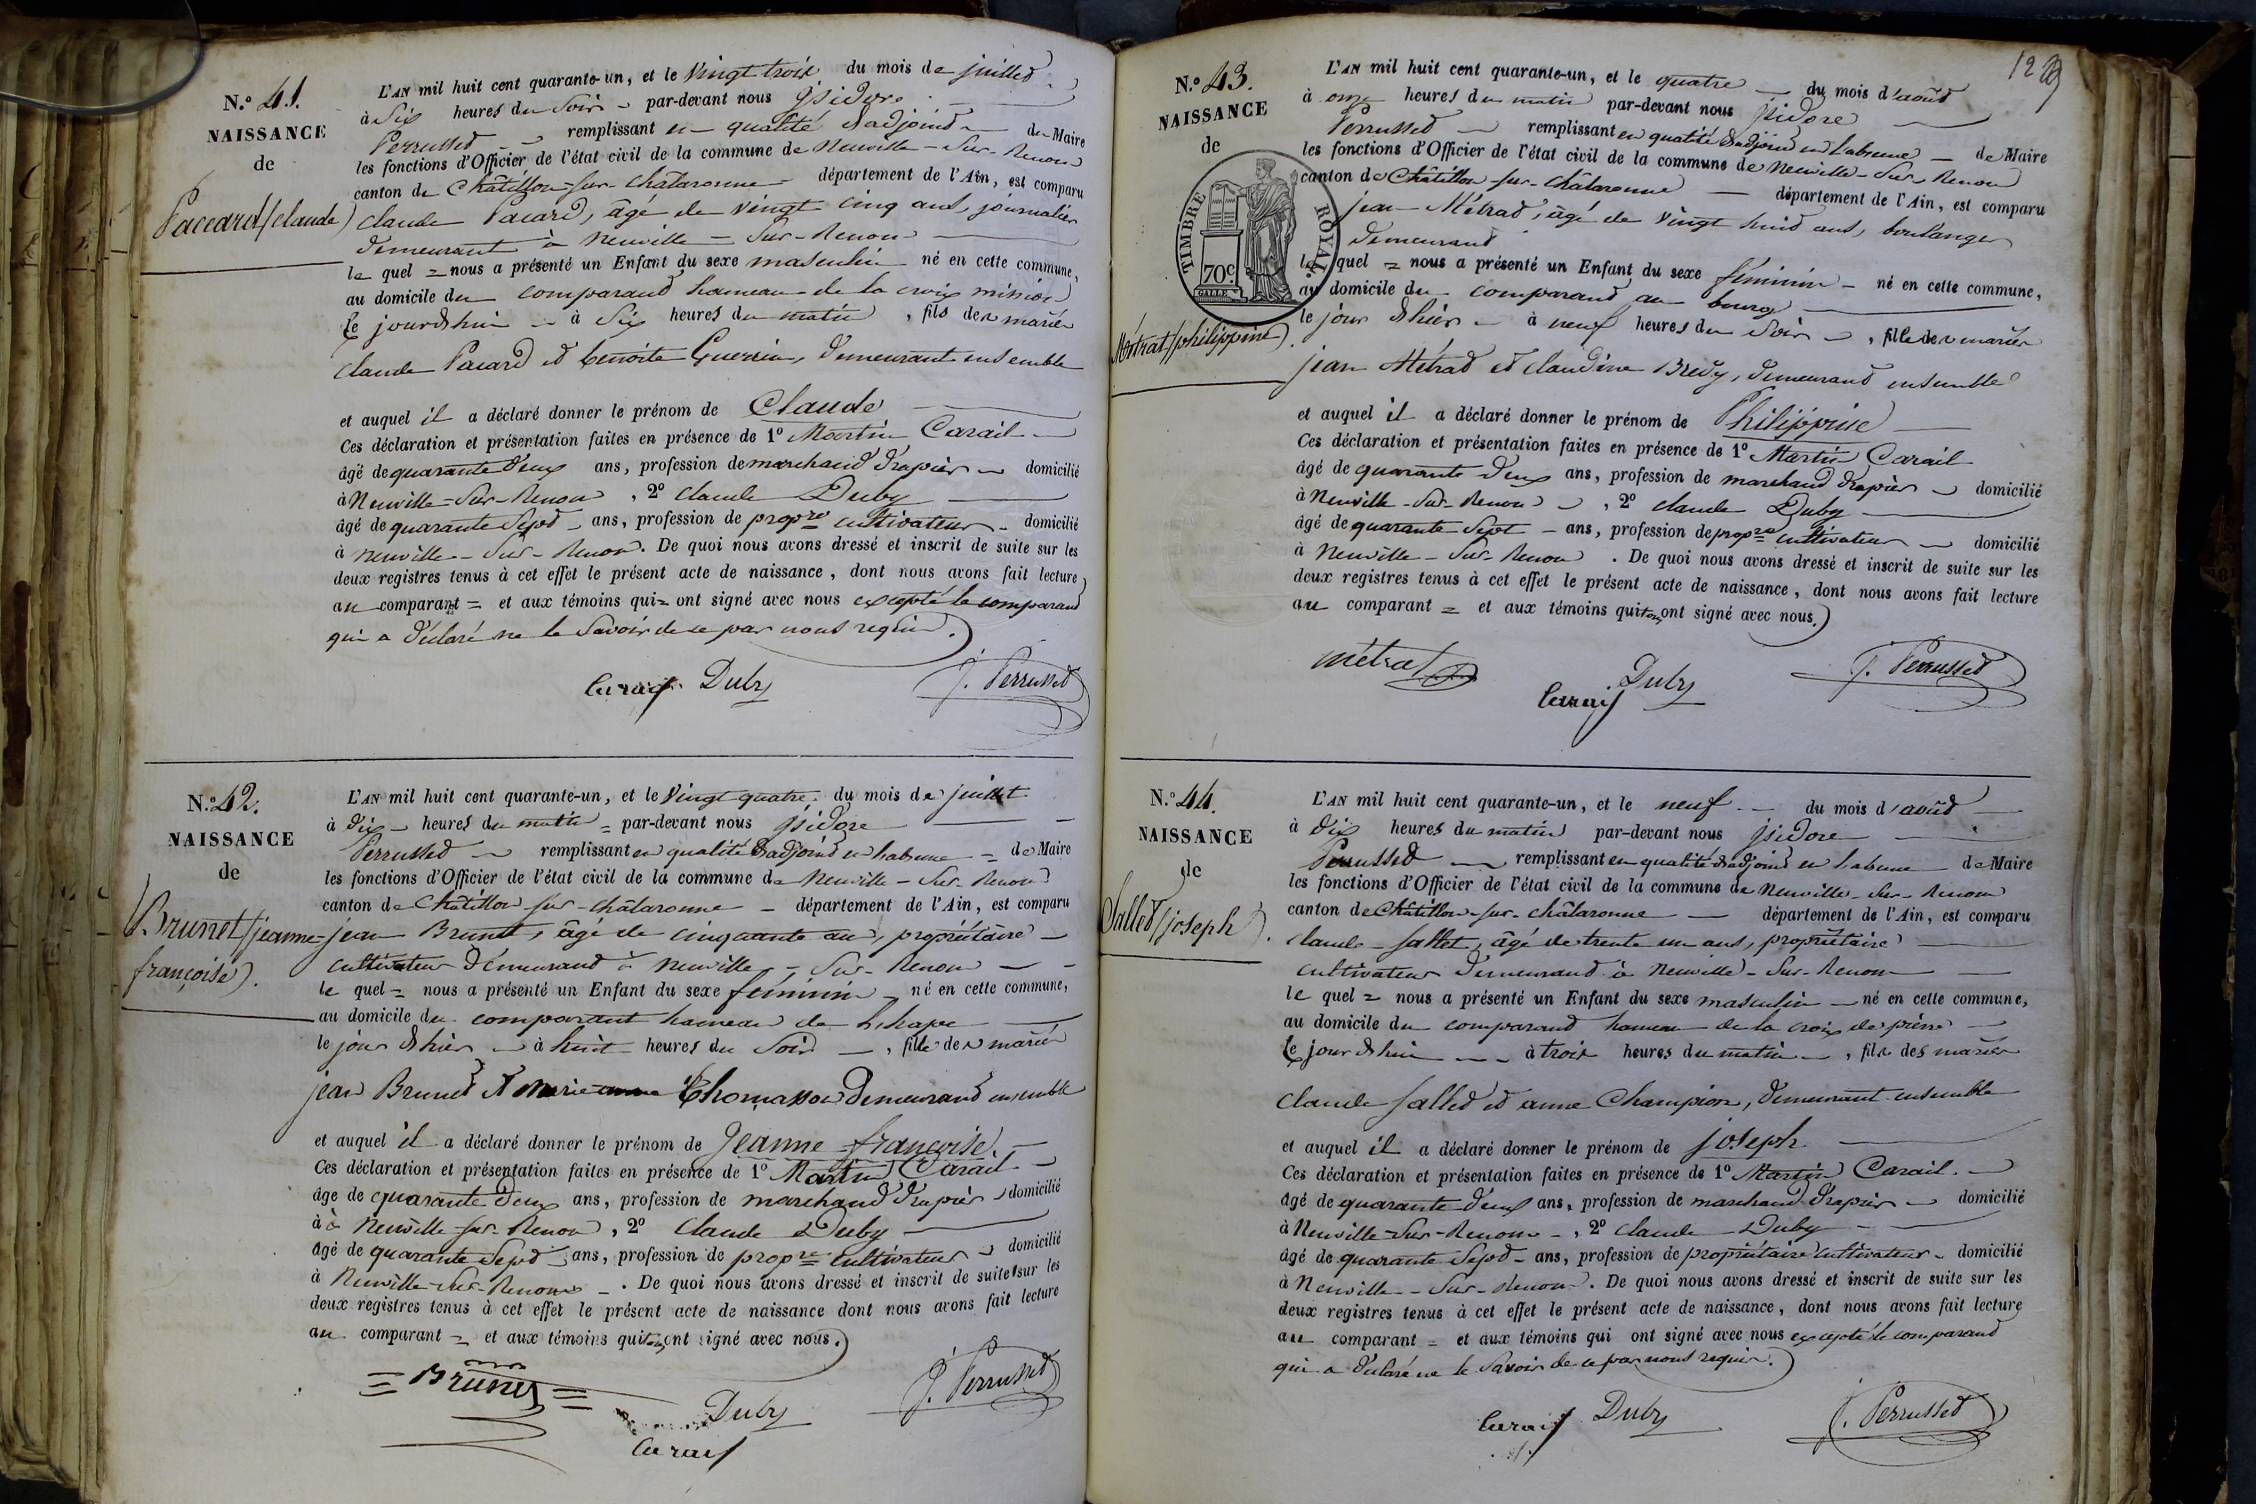 N.º 41.
NAISSANCE
de
Paccard (claude)
L'AN mil huit cent quarante-un, et le Vingt trois du mois de juillet
à Six heures du Soir par-devant nous jsidore
Perrussed remplissant en qualité d'adjoind de Maire
les fonctions d'Officier de l'état civil de la commune de Neuville-Sur-Renon
canton de Châtillon-sur-châlaronne département de l'Ain, est comparu
claude Pacard, âgé de vingt cinq ans, journalier
demeurant à neuville-Sur-Renon
le quel = nous a présenté un Enfant du sexe masculin né en cette commune,
au domicile du comparand hameau de la croix mission
Le jourdhui à Six heures du matin, fils des mariés
claude Pacard et benoite Guerrin, demeurant ensemble
et auquel il a déclaré donner le prénom de Claude
Ces déclaration et présentation faites en présence de 1º Martin Carail
âgé de quarante deux ans, profession de marchand drapier domicilié
à Neuville-Sur-Renon, 2º claude Duby
âgé de quarante Sepd ans, profession de propre cultivateur domicilié
à neuville-Sur-Renon. De quoi nous avons dressé et inscrit de suite sur les
deux registres tenus à cet effet le présent acte de naissance, dont nous avons fait lecture
au comparant = et aux témoins qui = ont signé avec nous excepté le comparand
qui a déclaré ne le Savoir de ce par nous requin.
Carail Duby J. Perrussed
N.º 42.
NAISSANCE
de
Brunet (jeanne
françoise).
L'AN mil huit cent quarante-un, et le Vingt quatre du mois de juillet
à dix heures du matin = par-devant nous jsidore
Perrussed remplissant en qualité d'adjoind en l'absence = de Maire
les fonctions d'Officier de l'état civil de la commune de Neuville-Sur-Renon
canton de Châtillon-sur-châlaronne département de l'Ain, est comparu
jean Brunet, âgé de cinquante ans, propriétaire
cultivateur demeurand à neuville-Sur-Renon
le quel = nous a présenté un Enfant du sexe féminin né en cette commune,
au domicile du comparant hameau de
le jour d'hier à huit heures du Soir, fille des mariés
jean Brunet et Marie anne Thomasson demeurand ensemble
et auquel il a déclaré donner le prénom de Jeanne françoise.
Ces déclaration et présentation faites en présence de 1º Martin Carail
âge de quarante deux ans, profession de marchand drapier domicilié
à à Neuville-sur-Renon, 2º Claude Duby
âgé de quarante Sepd ans, profession de propre cultivateur domicilié
à Neuville-Sur-Renon. De quoi nous avons dressé et inscrit de suite sur les
deux registres tenus à cet effet le présent acte de naissance dont nous avons fait lecture
au comparant = et aux témoins qui tous ont signé avec nous.
Brunet Duby J. Perrussed
Carail
12
N.º 43.
NAISSANCE
de
TIMBRE ROYAL
70c
Métrat (philippine).
L'AN mil huit cent quarante-un, et le quatre du mois d'aoûd
à onze heures du matin par-devant nous jsidore
Perrussed remplissant en qualité d'adjoind en l'absence de Maire
les fonctions d'Officier de l'état civil de la commune de Neuville-Sur-Renon
canton de Châtillon-sur-châlaronne département de l'Ain, est comparu
jean Métrad, âgé de vingt huid ans, boulanger
demeurand
le quel = nous a présenté un Enfant du sexe féminin né en cette commune,
au domicile du comparand au bourg
le jour d'hier à neuf heures du Soir, fille des mariés
jean Métrad et claudine Bredy, demeurand ensemble
et auquel il a déclaré donner le prénom de Philippine
Ces déclaration et présentation faites en présence de 1º Martin Carail
âgé de quarante deux ans, profession de marchand drapier domicilié
à Neuville-Sur-Renon, 2º claude Duby
âgé de quarante Sept ans, profession de propre cultivateur domicilié
à Neuville-Sur-Renon. De quoi nous avons dressé et inscrit de suite sur les
deux registres tenus à cet effet le présent acte de naissance, dont nous avons fait lecture
au comparant = et aux témoins qui tous ont signé avec nous.
métrat Duby J. Perrussed
Carail
N.º 44.
NAISSANCE
de
Salled (joseph).
L'AN mil huit cent quarante-un, et le neuf du mois d'aoûd
à dix heures du matin par-devant nous jsidore
Perrussed remplissant en qualité d'adjoind en l'absence de Maire
les fonctions d'Officier de l'état civil de la commune de Neuville-Sur-Renon
canton de Châtillon-sur-châlaronne département de l'Ain, est comparu
claude Sallet, âgé de trente un ans, propriétaire
cultivateur demeurand à Neuville-Sur-Renon
le quel = nous a présenté un Enfant du sexe masculin né en cette commune,
au domicile du comparand hameau de la croix de pierre
Le jour dhui à trois heures du matin, fils des mariés
claude Salled et anne Champion, demeurant ensemble
et auquel il a déclaré donner le prénom de joseph
Ces déclaration et présentation faites en présence de 1º Martin Carail
âgé de quarante deux ans, profession de marchand drapier domicilié
à Neuville-Sur-Renon, 2º claude Duby
âgé de quarante Sepd ans, profession de propriétaire cultivateur domicilié
à Neuville-Sur-Renon. De quoi nous avons dressé et inscrit de suite sur les
deux registres tenus à cet effet le présent acte de naissance, dont nous avons fait lecture
au comparant = et aux témoins qui ont signé avec nous excepté le comparand
qui a déclaré ne le Savoir de ce par nous requin.
Carail Duby J. Perrussed